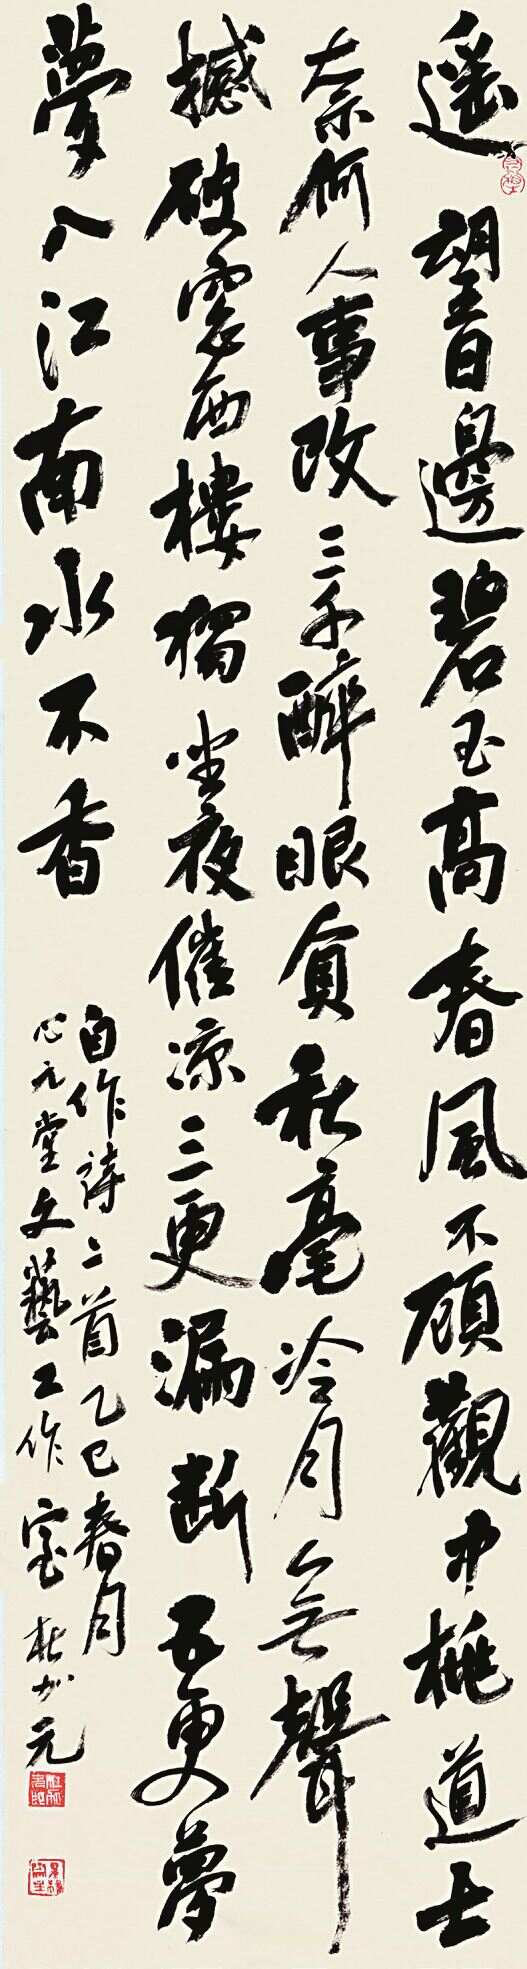 遥望日邊碧玉高春風不顧觀中桃道士
奈何人事改三千醉眼負秋毫冷月無聲
撼破窗西樓獨坐夜催涼三更漏斷五更夢
夢入江南水不香
自作詩二首乙巳春月
心元堂文藝工作室